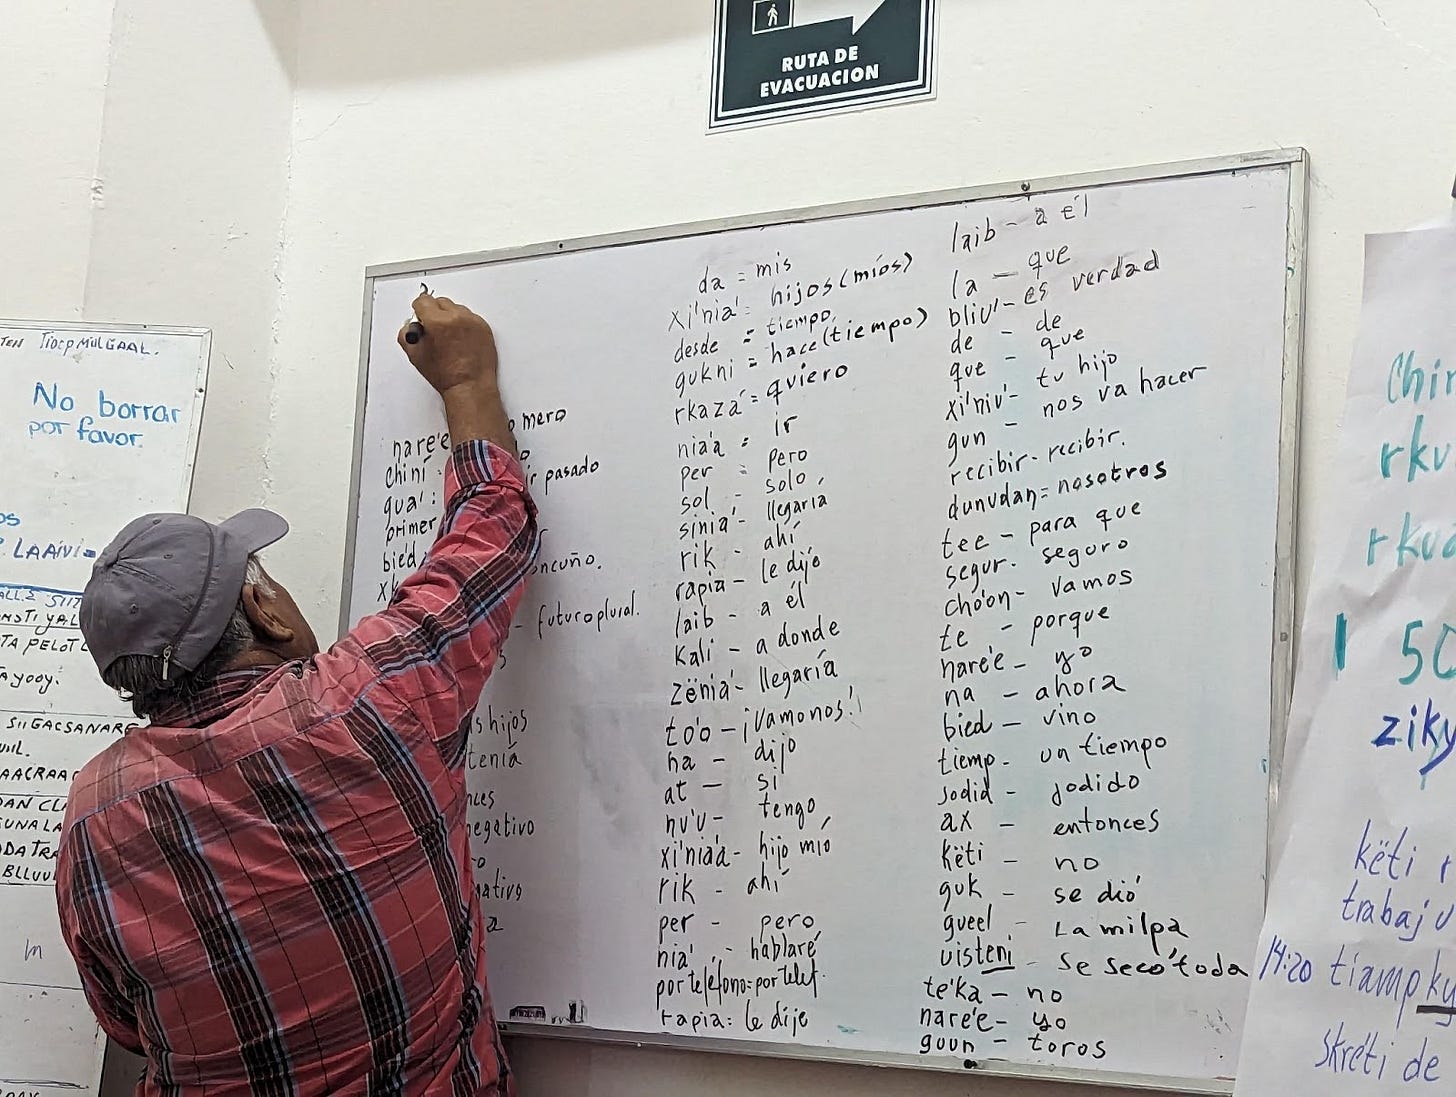 RUTA DE
EVACUACION
No borrar
por favor.
nare'e
mero
chiní
gua':
pasado
primer
bied
concuño.
futuro plural.
hijos
tenía
negativo
da = mis
xi'nia' = hijos (míos)
desde = tiempo.
gukni = hace (tiempo)
rkaza' = quiero
nia'a = ir
per = pero
sol - solo
sinia' - llegaría
rik - ahí
rapia - le dije
laib - a él
Kali - a donde
zënia' - llegaría
to'o - ¡Vamonos!
na - dijo
at - si
nu'u - tengo
xi'nia'a - hijo mío
rik - ahí
per - pero
nia' - hablaré
por telefono = por telef.
rapia: le dije
laib - a él
la - que
bliu' - es verdad
de - de
que - que
xi'niu' - tu hijo
gun - nos va hacer
recibir - recibir.
dunudan = nosotros
tee - para que
segur. seguro
cho'on - vamos
te - porque
nare'e - yo
na - ahora
bied - vino
tiemp - un tiempo
jodid - jodido
ax - entonces
këti - no
guk - se dió
gueel - La milpa
uisteni - se seco' toda
te'ka - no
nare'e - yo
guun - toros
rku
1 50
ziky
këti
trabaju
14:20 tiampky
skréti de